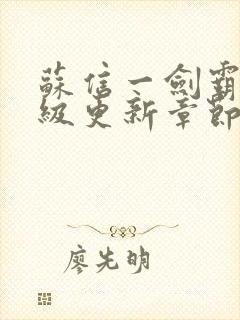 蘇信一劍霸
級更新章節
廖先明